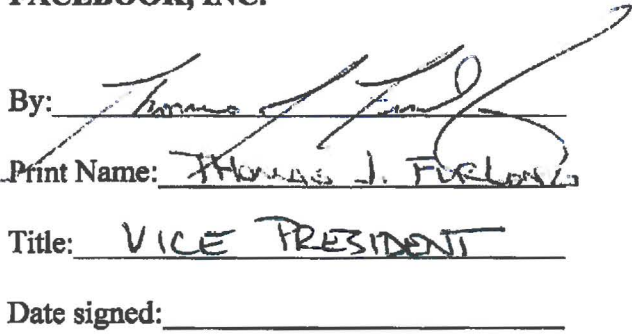 FACEBOOK, INC.
By: Thomas J Furlong
Print Name: Thomas J. FURLONG
Title: VICE PRESIDENT
Date signed: